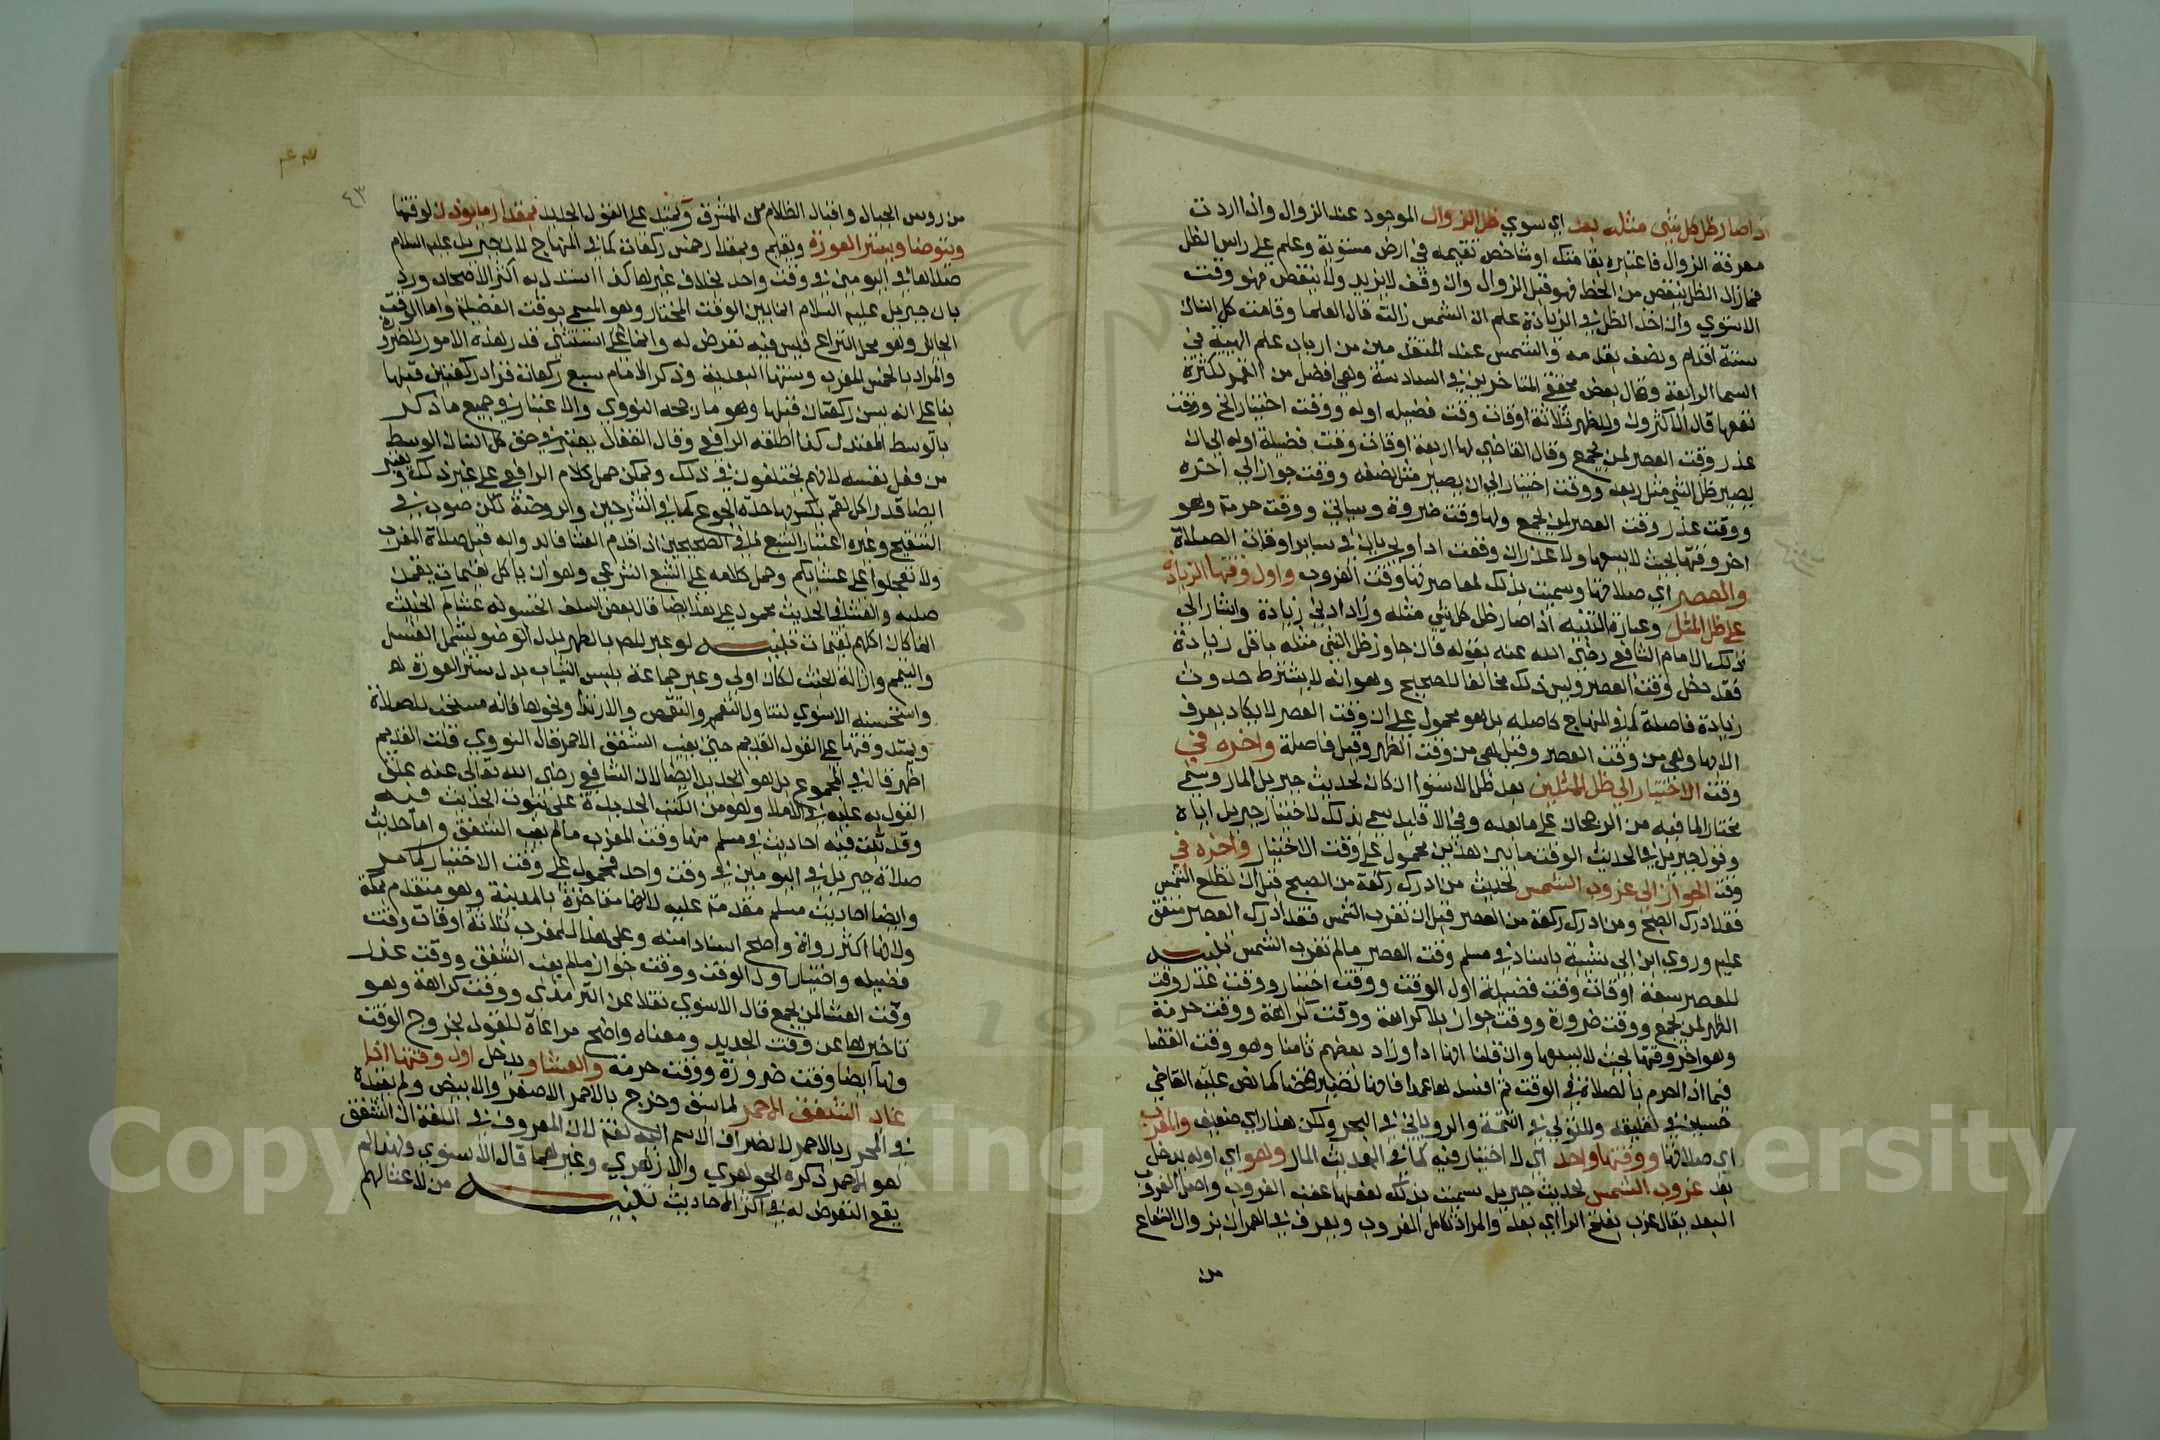 اذا صار ظل كل شي مثله بعد اي سوي ظل الزوال الموجود عند الزوال واذا اردت
معرفة الزوال فاعتبره بقامتك او شاخص تقيمه في ارض مستوية وعلم علي راس الظل
فما زال الظل ينقص من الخط فهو قبل الزوال وان وقف لا يزيد ولا ينقص فهو وقت
الاستوي وان اخذ الظل في الزيادة علم ان الشمس زالت قال العلما وقامت كل انسان
ستة اقدام ونصف بقدمه والشمس عند المتقدمين من ارباب علم الهيية في
السما الرابعة وقال بعض محققي المتاخرين في السادسة وهي افضل من القمر لكثرة
نفعها قال الاكثرون وللظهر ثلاثة اوقات وقت فضيله اوله ووقت اختيار الخ ووقت
عذر وقت العصر لمن يجمع وقال القاضي لها اربعة اوقات وقت فضيلة اوله الي ان
يصير ظل الشي مثل ربعه ووقت اختيار الي ان يصير مثل نصفه ووقت جواز الي اخره
ووقت عذر وقت العصر لمن يجمع ولها وقت ضرورة وسياتي ووقت حرمة وهو
اخر وقتها بحيث لا يسعها ولا عذر وان وقعت ادا ويجريان في ساير اوقات الصلاة
والعصر اي صلاتها وسميت بذلك لمعاصرتها وقت الغروب واول وقتها الزيادة
علي ظل المثل وعبارة التنبيه اذا صار ظل كل شي مثله وزاد ادني زيادة واشار الي
ذلك الامام الشافعي رضي الله عنه بقوله فان جاوز ظل الشي مثله باقل زيادة
فقد دخل وقت العصر وليس ذلك مخالفا للصحيح وهو انه لا يشترط حدوث
زيادة فاصلة كما في المنهاج كاصله بل هو محمول علي ان وقت العصر لا يكاد يعرف
الا بها وهي من وقت العصر وقيل هي من وقت الظهر وقيل فاصلة واخره في
وقت الاختيار الي ظل المثلين بعد ظل الاستوا ان كان لحديث جبريل المار وسمي
مختارا لما فيه من الرجحان علي ما بعده وفي الاقليد سمي بذلك لاختيار جبريل اياه
وقول جبريل في الحديث الوقت ما بين هذين محمول علي وقت الاختيار واخره في
وقت الجواز الي غروب الشمس لحديث من ادرك ركعة من الصبح قبل ان تطلع الشمس
فقد ادرك الصبح ومن ادرك ركعة من العصر قبل ان تغرب الشمس فقد ادرك العصر متفق
عليه وروي ابن ابي شيبة باسناد في مسلم وقت العصر ما لم تغرب الشمس تنبيه
للعصر سبعة اوقات وقت فضيلة اول الوقت ووقت اختيار ووقت عذر وقت
الظهر لمن يجمع ووقت ضرورة ووقت جواز بلا كراهة ووقت كراهة ووقت حرمة
وهو اخر وقتها بحيث لا يسعها وان قلنا انها ادا وزاد بعضهم ثامنا وهو وقت القضا
فيما اذا احرم بالصلاة في الوقت ثم افسدها عمدا فانها تصير قضا كما نص عليه القاضي
حسين في تعليقه والمتولي في التتمة والروياني في البحر ولكن هذا راي ضعيف والمغرب
اي صلاتها ووقتها واحد اي لا اختيار فيه كما في الحديث المار وهو اي اوله يدخل
بعد غروب الشمس لحديث جبريل سميت بذلك لفعلها عقب الغروب واصل الغروب
البعد يقال غرب بفتح الرا اي بعد والمراد تكامل الغروب ويعرف في العمران بزوال الشعاع
من
٤٣
من روس الجبال واقبال الظلام من المشرق ويمتد علي القول الجديد بمقدار ما يوذن لوقتها
ويتوضا ويستر العورة ويقيم وبمقدار خمس ركعات كما في المنهاج لان جبريل عليه السلام
صلاها في اليومين في وقت واحد بخلاف غيرها كذا استدل به اكثر الاصحاب ورد
بان جبريل عليه السلام انما بين الوقت المختار وهو المسمي بوقت الفضيلة واما الوقت
الجايز وهو محل النزاع فليس فيه تعرض له وانما استثني قدر هذه الامور للضرورة
والمراد بالخمس المغرب وسنتها البعدية وذكر الامام سبع ركعات فزاد ركعتين قبلها
بنا علي انه يسن ركعتان قبلها وهو ما رجحه النووي والاعتبار في جميع ما ذكر
بالوسط المعتدل كذا اطلقه الرافعي وقال القفال يعتبر في حق كل انسان الوسط
من فعل نفسه لانهم يختلفون في ذلك ويمكن حمل كلام الرافعي علي غير ذلك ويعتبر
ايضا قدر اكل لقم يكسر بها حدة الجوع كما في الشرحين والروضة لكن صوب في
التنقيح وغيره اعتبار الشبع لما في الصحيحين اذا قدم العشا فابدوا به قبل صلاة المغرب
ولا تعجلوا علي عشايكم وحمل كلامه علي الشبع الشرعي وهو ان ياكل لقيمات يقمن
صلبه والعشا في الحديث محمول علي هذا ايضا قال بعض السلف اتحسبونه عشاكم الخبيث
انما كان اكلهم لقيمات تنبيه لو عبر المص بالطهر بدل الوضو ليشمل الغسل
والتيمم وازالة الخبث لكان اولي وعبر جماعة بلبس الثياب بدل ستر العورة
واستحسنه الاسنوي لتناوله التعمم والتقمص والارتدا ونحوها فانه مستحب للصلاة
ويمتد وقتها علي القول القديم حتي يغيب الشفق الاحمر قال النووي قلت القديم
اظهر قال في المجموع بل هو الجديد ايضا لان الشافعي رضي الله تعالي عنه علق
القول به عليه في الاملا وهو من الكتب الجديدة علي ثبوت الحديث فيه
وقد ثبت فيه احاديث في مسلم منها وقت المغرب ما لم يغب الشفق واما حديث
صلاة جبريل في اليومين في وقت واحد فمحمول علي وقت الاختيار كما مر
وايضا احاديث مسلم مقدمة عليه لانها متاخرة بالمدينة وهو متقدم بمكة
ولانها اكثر رواة واصح اسنادا منه وعلي هذا للمغرب ثلاثة اوقات وقت
فضيله واختيار اول الوقت ووقت جواز ما لم يغب الشفق ووقت عذر
وقت العشا لمن يجمع قال الاسنوي نقلا عن الترمذي ووقت كراهة وهو
تاخيرها عن وقت الجديد ومعناه واضح مراعاة للقول بخروج الوقت
ولها ايضا وقت ضرورة ووقت حرمة والعشا ويدخل اول وقتها اذا
غاب الشفق الاحمر لما سبق وخرج بالاحمر الاصفر والابيض ولم يقيده
في المحرر بالاحمر لانصراف الاسم اليه لغة لان المعروف في اللغة ان الشفق
هو الاحمر ذكره الجوهري والازهري وغيرهما قال الاسنوي ولهذا لم
يقع التعرض له في اكثر الاحاديث تنبيه من لا عشا لهم